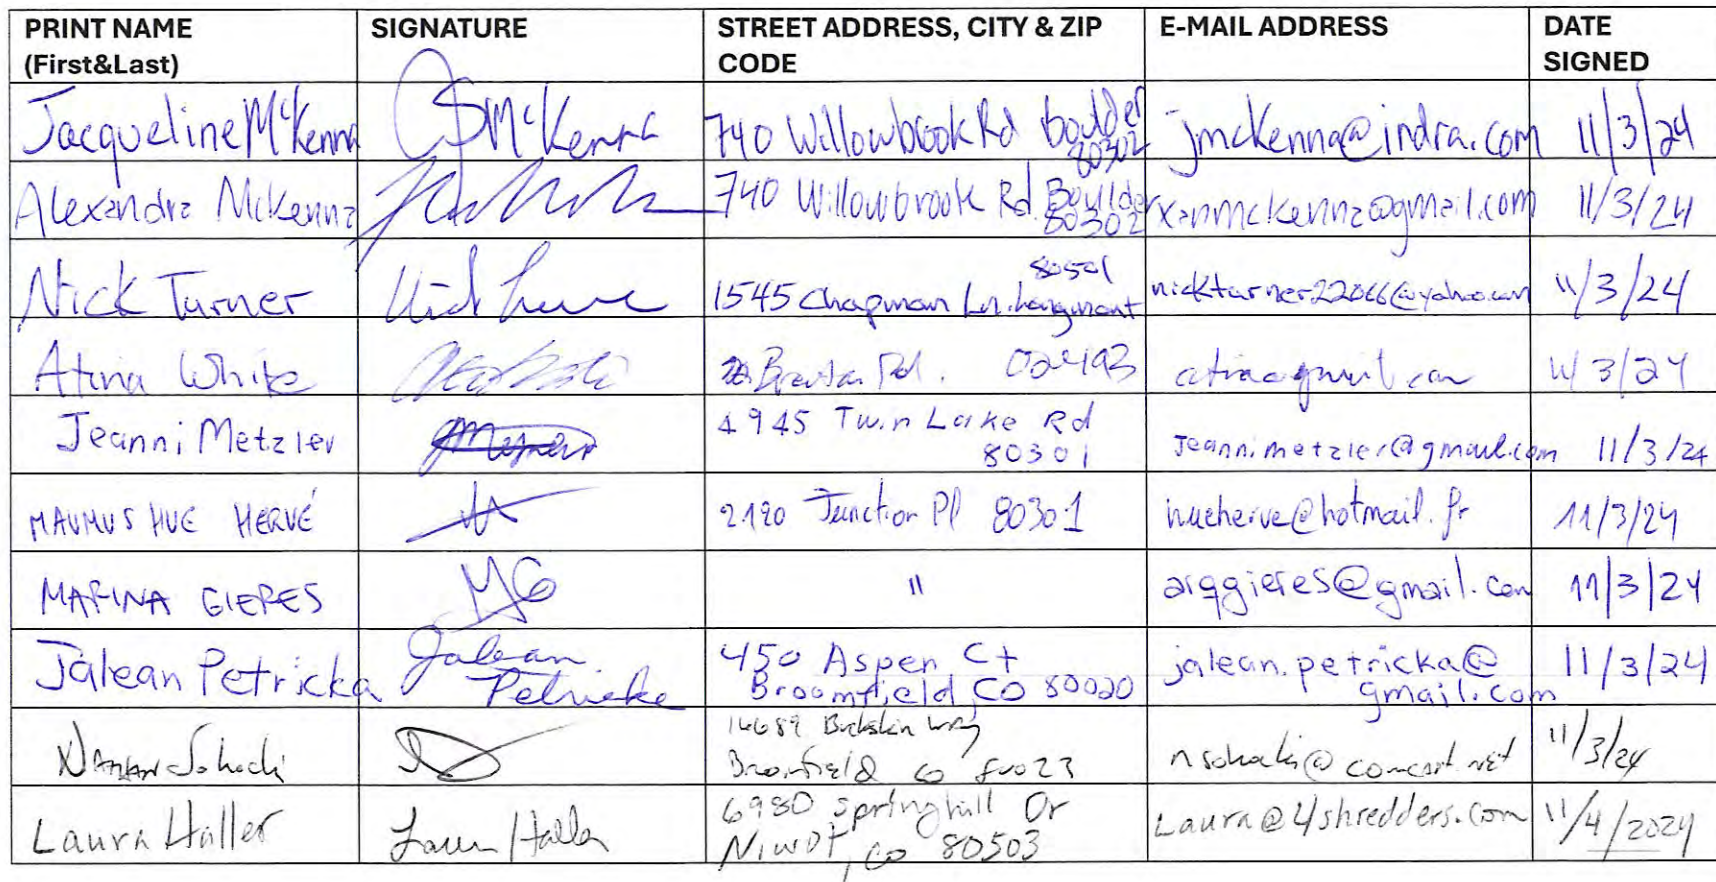 PRINT NAME (First&Last) SIGNATURE STREET ADDRESS, CITY & ZIP CODE E-MAIL ADDRESS DATE SIGNED
Jacqueline McKenna JSMcKenna 740 Willowbrook Rd boulder 80302 jmckenna@indra.com 11/3/24
Alexandra McKenna 740 Willowbrook Rd. Boulder 80302 xanmckenna@gmail.com 11/3/24
Nick Turner 1545 Chapman Ln. Longmont 80501 nickturner22066@yahoo.com 11/3/24
Atina White Rd. 02493 11/3/24
Jeanni Metzler 4945 Twin Lake Rd 80301 Jeanni.metzler@gmail.com 11/3/24
MAUMUS HUE HERVÉ 2190 Junction Pl 80301 hueherve@hotmail.fr 11/3/24
MARINA GIERES " arggieres@gmail.com 11/3/24
Jalean Petricka Jalean Petricka 450 Aspen Ct Broomfield, CO 80020 jalean.petricka@gmail.com 11/3/24
14689 Buckskin Way Broomfield CO 80023 11/3/24
Laura Haller Laura Haller 6980 Springhill Dr Niwot, CO 80503 Laura@4shredders.com 11/4/2024